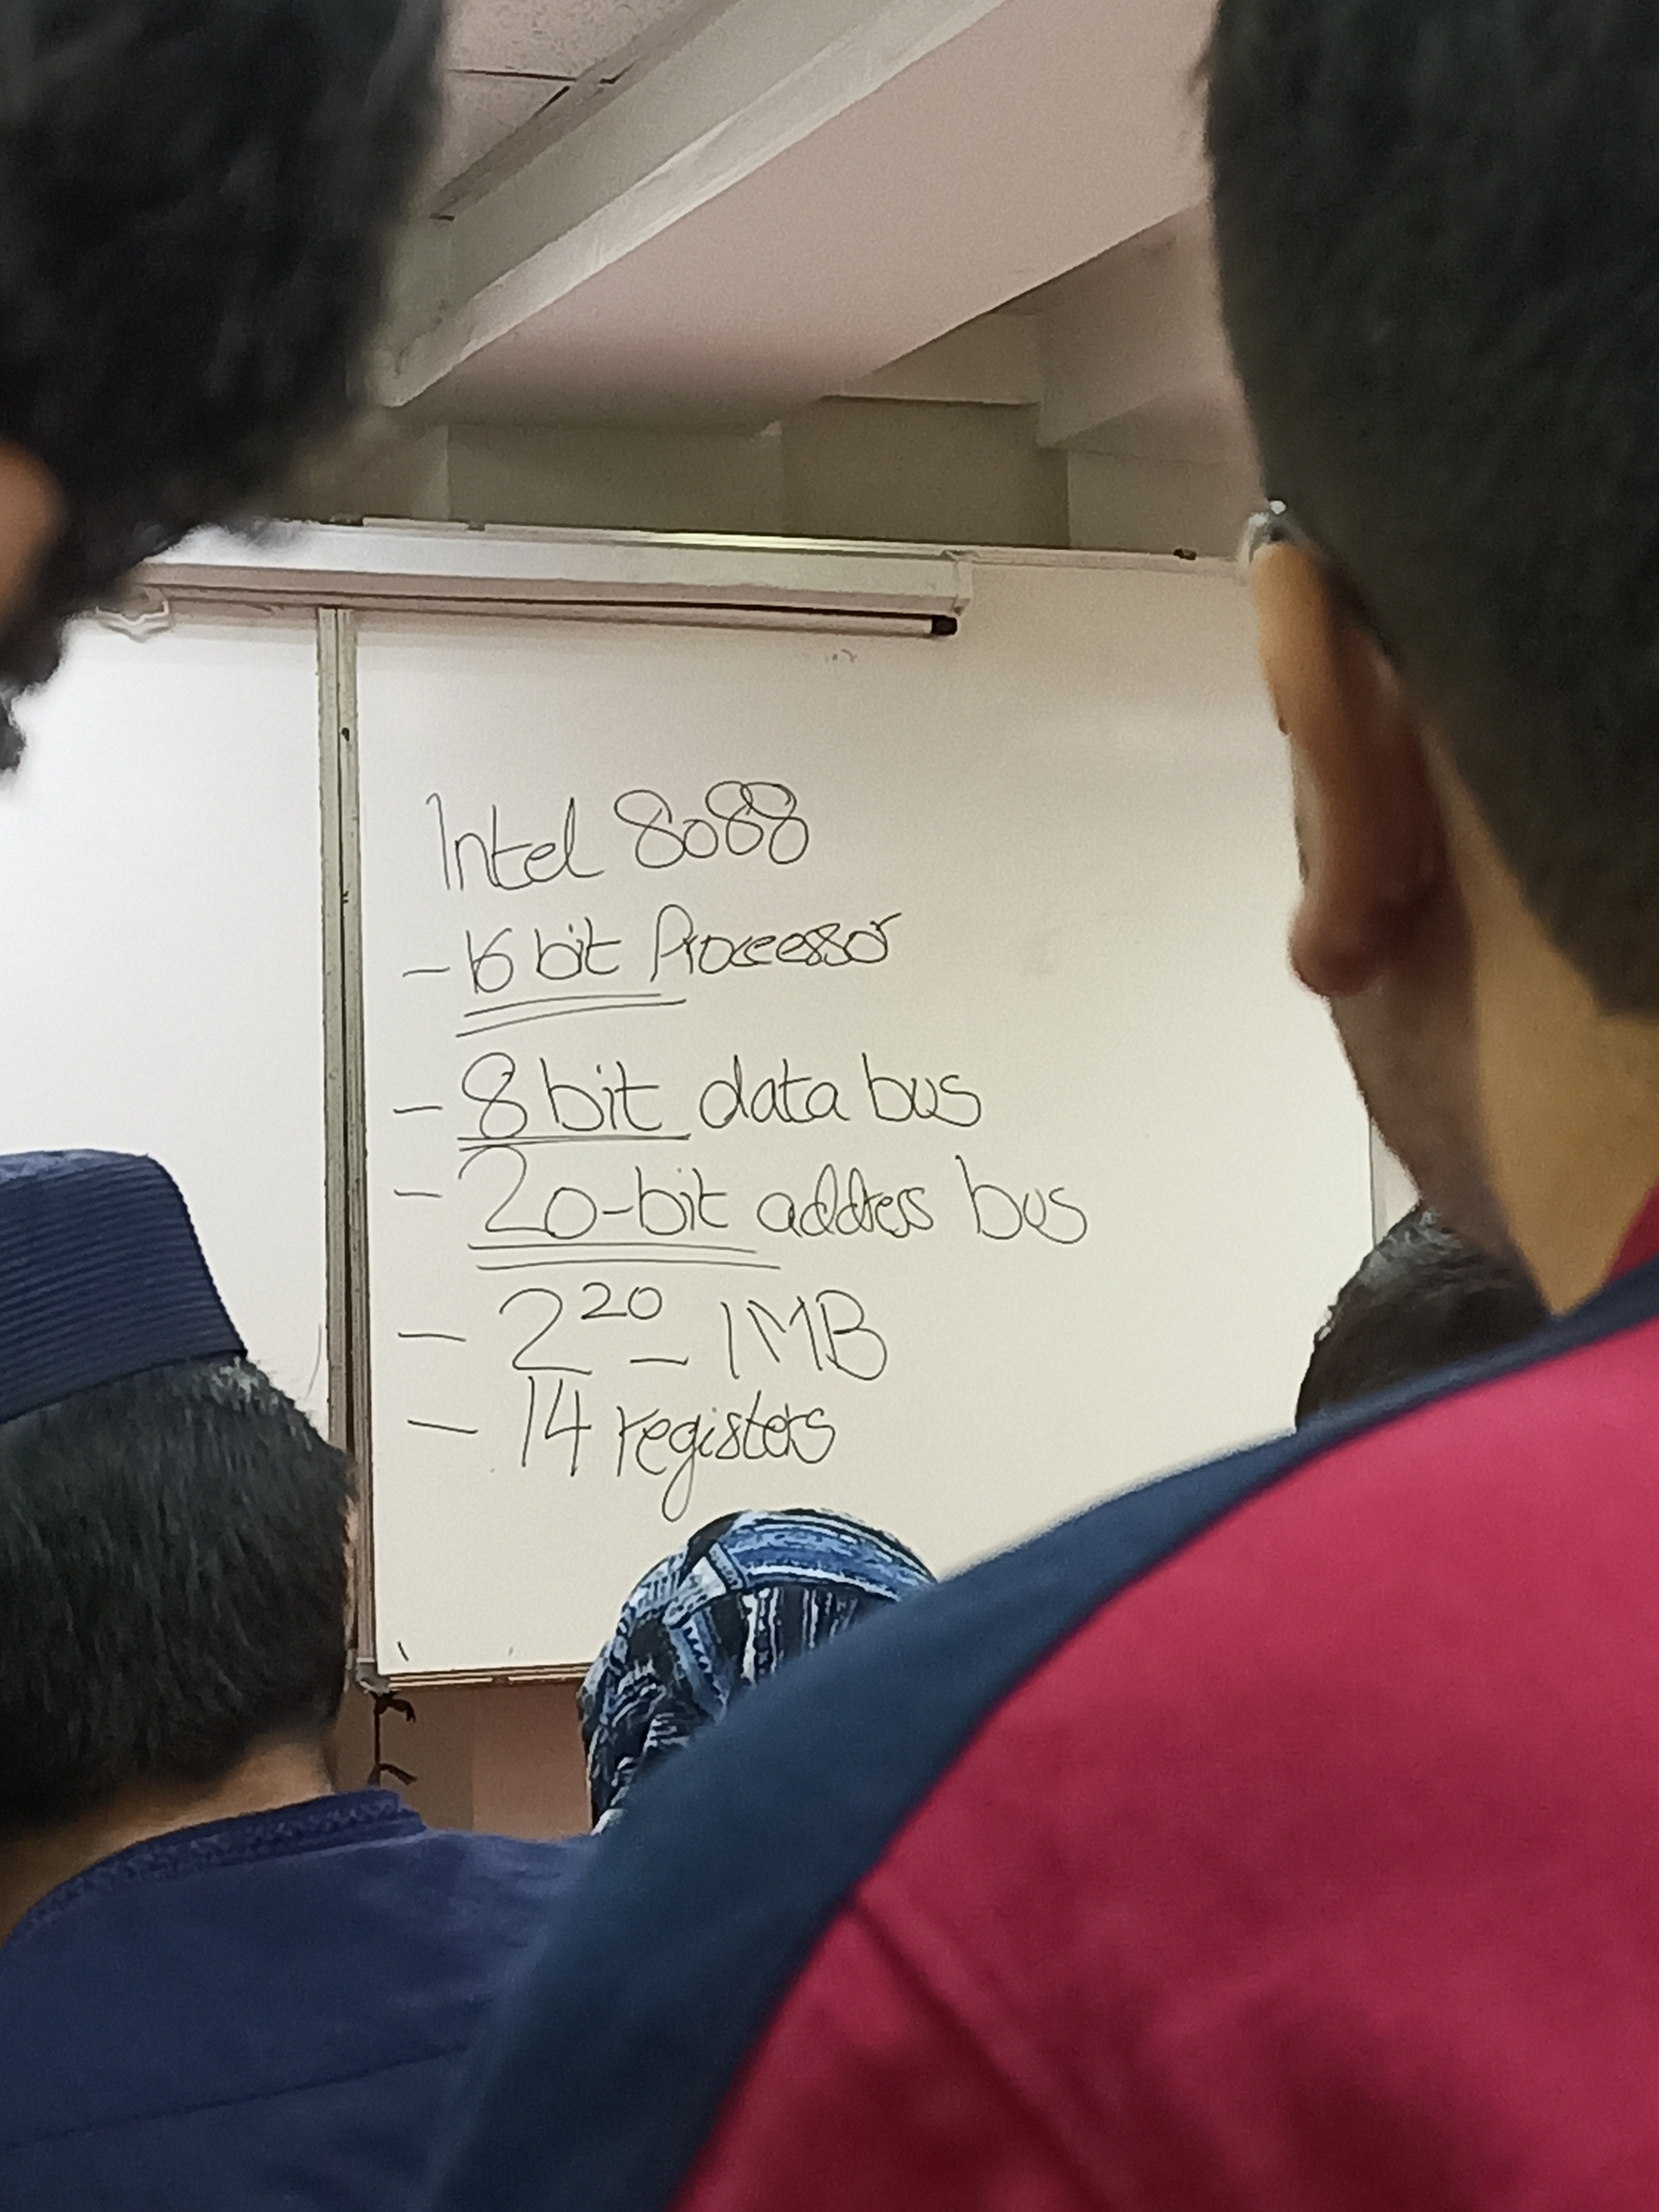 Intel 8088
- 16 bit Processor
- 8 bit data bus
- 20-bit address bus
- 2²⁰ - 1MB
- 14 registers